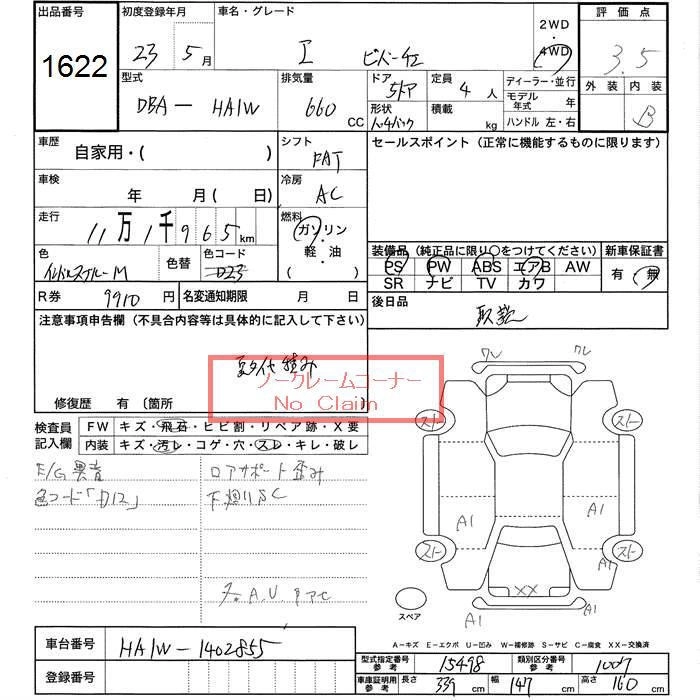 出品番号 初度登録年月 車名・グレード 2WD・4WD 評価点
1622 23 5月 I ビバーチェ 3.5
型式 排気量 ドア 定員 ディーラー・並行 外装 内装
DBA－HA1W 660 CC 5ドア 4人 モデル年式 年 B
形状 積載 kg ハンドル 左・右
車歴 自家用・( ) シフト FAT セールスポイント (正常に機能するものに限ります)
車検 年 月( 日) 冷房 AC
走行 11万1千965km 燃料 ガソリン・軽・油 ( )
色 M 色替 色コード D23
装備品 (純正品に限り○をつけてください) 新車保証書
PS PW ABS エアB AW 有・無
SR ナビ TV カワ
R券 9910円 名変通知期限 月 日 後日品 取説
注意事項申告欄 (不具合内容等は具体的に記入して下さい)
ノークレームコーナー
No Claim
修復歴 有 (箇所 )
検査員記入欄 FW キズ・飛石・ヒビ割・リペア跡・X要
内装 キズ・汚レ・コゲ・穴・スレ・キレ・破レ
E/G異音 ロアサポート歪み
色コード「D12」 下廻りSC
ワレ ワレ
ストー ストー
A1 A1
ストー ストー
A1
XX
A1 A1
スペア
A－キズ E－エクボ U－凹み W－補修跡 S－サビ C－腐食 XX－交換済
車台番号 HA1W－1402855
登録番号
型式指定番号 参考 15498 類別区分番号 参考 1007
車庫証明用 参考 長さ 339cm 幅 147cm 高さ 160cm